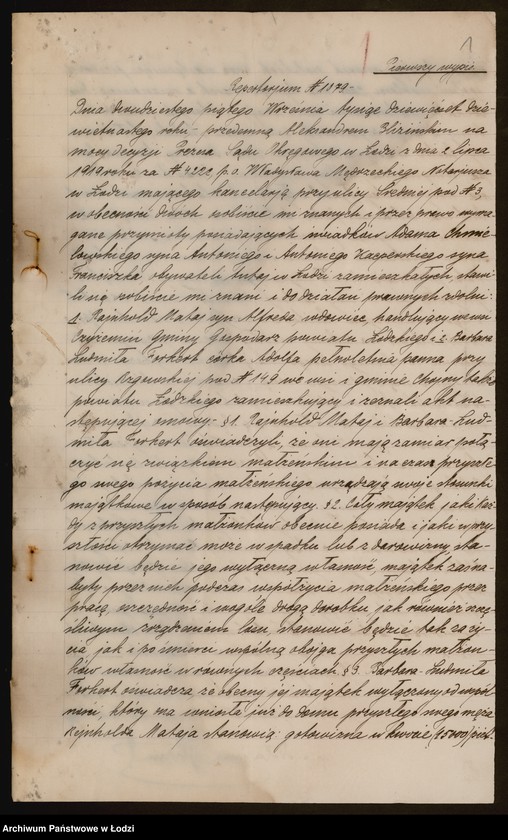 1
Pierwszy wypis
Repertorjum № 1179.
Dnia dwudziestego piątego Września tysiąc dziewięćset dzie-
więtnastego roku przedemną Aleksandrem na
mocy decyzji Prezesa Sądu Okręgowego w Łodzi z dnia 2 lipca
1919 roku za № 4322 p.o. Władysława Notarjusza
w Łodzi mającego kancelarją przy ulicy Średniej pod № 3,
w obecności dwóch osobiście mi znanych i przez prawo wyma-
gane przymioty posiadających świadków Adama Chmie-
lowskiego syna Antoniego i Antoniego Kasperskiego syna
Franciszka obywateli tutaj w Łodzi zamieszkałych stawi-
li się osobiście mi znani i do działań prawnych zdolni:
1. Rajnhold Mataj syn Alfreda, wdowiec, handlujący we wsi
Gminy Gospodarz powiatu Łódzkiego i 2. Barbara
Ludmiła Forkert córka Adolfa pełnoletnia panna przy
ulicy Rzgowskiej pod № 149 we wsi i gminie Chojny także
powiatu Łódzkiego zamieszkujący i zeznali akt na-
stępującej umowy: § 1. Rajnhold Mataj i Barbara-Lud-
miła Forkert oświadczyli, że oni mają zamiar połą-
czyć się związkiem małżeńskim i na czas przyszłe-
go swego pożycia małżeńskiego urządzają swoje stosunki
majątkowe w sposób następujący. § 2. Cały majątek jaki każ-
dy z przyszłych małżonków obecnie posiada i jaki w przy-
szłości otrzymać może w spadku lub z darowizny, sta-
nowić będzie jego wyłączną własność, majątek zaś na-
byty przez nich podczas współżycia małżeńskiego przez
pracę, oszczędność i wogóle drogą dorobku, jak również szczę-
śliwym zrządzeniem losu, stanowić będzie tak za ży-
cia jak i po śmierci wspólną obojga przyszłych małżon-
ków własność w równych częściach. § 3. Barbara-Ludmiła
Forkert oświadcza że obecny jej majątek wyłączony od wspól-
ności, który wniosła już do domu przyszłego swego męża
Rejnholda Mataja stanowią: gotowizna w kwocie (15000) pięt-
Archiwum Państwowe w Łodzi